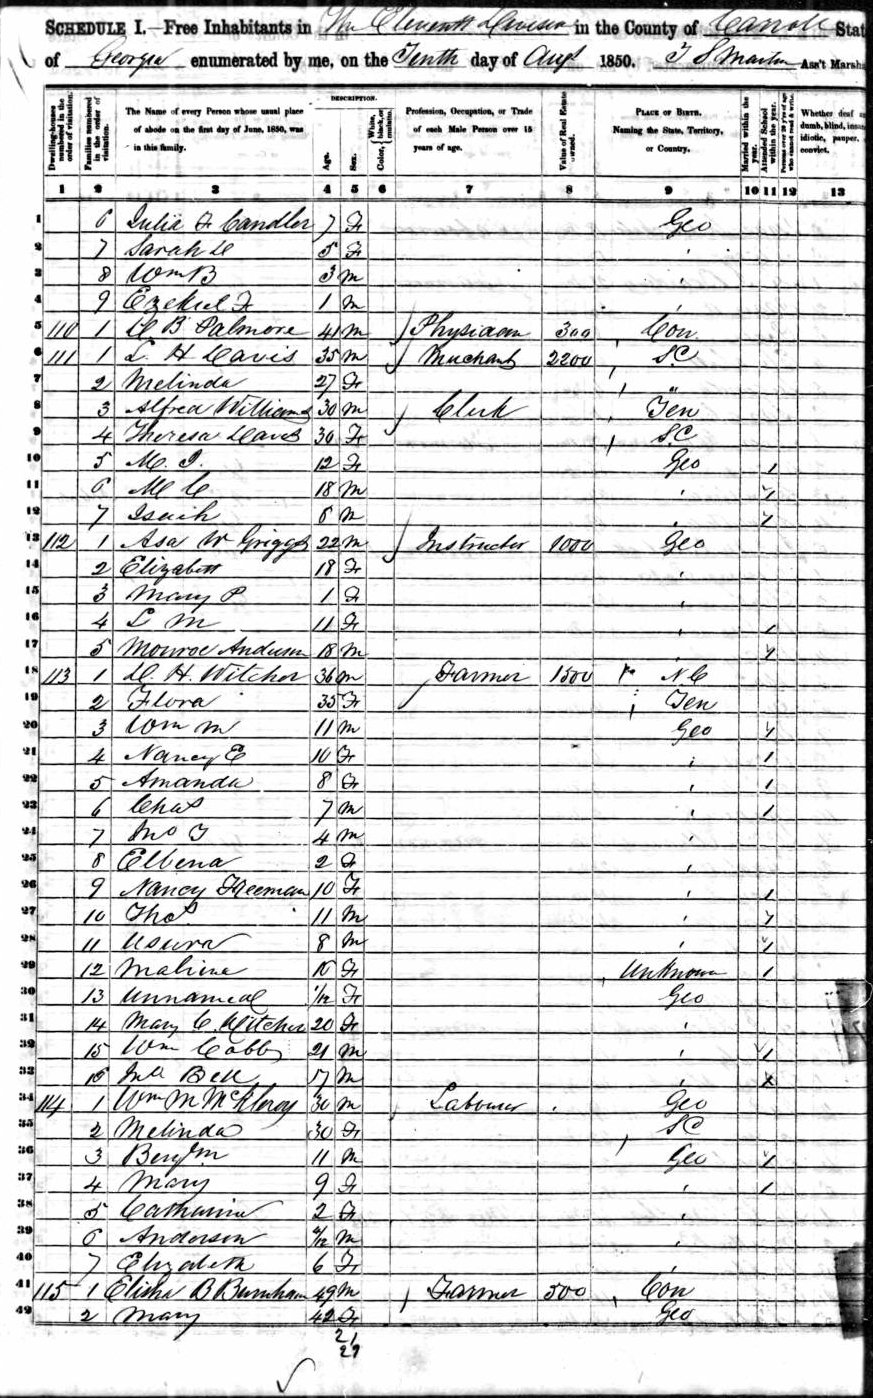 SCHEDULE I.—Free Inhabitants in The Eleventh Division in the County of Carroll State
of Georgia enumerated by me, on the Tenth day of Augt 1850. Ass't Marshal
Dwelling-houses numbered in the order of visitation.
Families numbered in the order of visitation.
The Name of every Person whose usual place of abode on the first day of June, 1850, was in this family.
DESCRIPTION.
Age.
Sex.
Color, White, black, or mulatto.
Profession, Occupation, or Trade of each Male Person over 15 years of age.
Value of Real Estate owned.
PLACE OF BIRTH. Naming the State, Territory, or Country.
Married within the year.
Attended School within the year.
Persons over 20 y'rs of age who cannot read & write.
Whether deaf dumb, blind, idiotic, pauper, convict.
1 2 3 4 5 6 7 8 9 10 11 12 13
1 6 Julia F Candler 7 F Geo
2 7 Sarah 5 F
3 8 Wm B 3 m
4 9 Ezekiel F 1 m
5 110 1 B Palmore 41 m Physician 300 Con
6 111 1 L. H Davis 35 m Merchant 2200 S.C
7 2 Melinda 27 F "
8 3 Alfred Williams 30 m Clerk Ten
9 4 Theresa Davis 30 F S.C
10 5 M. J. 12 F Geo 1
11 6 M C 18 m 1
12 7 Isaih 6 m 1
13 112 1 Asa W Griggs 22 m Instructor 1000 Geo
14 2 Elizabeth 18 F
15 3 Mary P 1 F
16 4 L M 11 F 1
17 5 Monroe 18 m 1
18 113 1 H. Witcher 36 m Farmer 1500 N C
19 2 Flora 35 F Ten
20 3 Wm M 11 m Geo 1
21 4 Nancy E 10 F 1
22 5 Amanda 8 F 1
23 6 Chas 7 m 1
24 7 Jno T 4 m
25 8 Elbena 2 F
26 9 Nancy Freeman 10 F 1
27 10 Thos. 11 m 1
28 11 8 m 1
29 12 F Unknown 1
30 13 Unnamed 1/12 F Geo
31 14 Mary C. Witcher 20 F
32 15 Wm Cobb 21 m 1
33 16 Bell 17 m x
34 114 1 Wm M McElroy 30 m Labourer Geo
35 2 Melinda 30 F SC
36 3 Benjm 11 m Geo 1
37 4 Mary 9 F 1
38 5 Catharine 2 F
39 6 Anderson m
40 7 Elizabeth 6 F
41 115 1 Elisha B Burnham 49 m Farmer 500 Con
42 2 Mary 42 F Geo
21